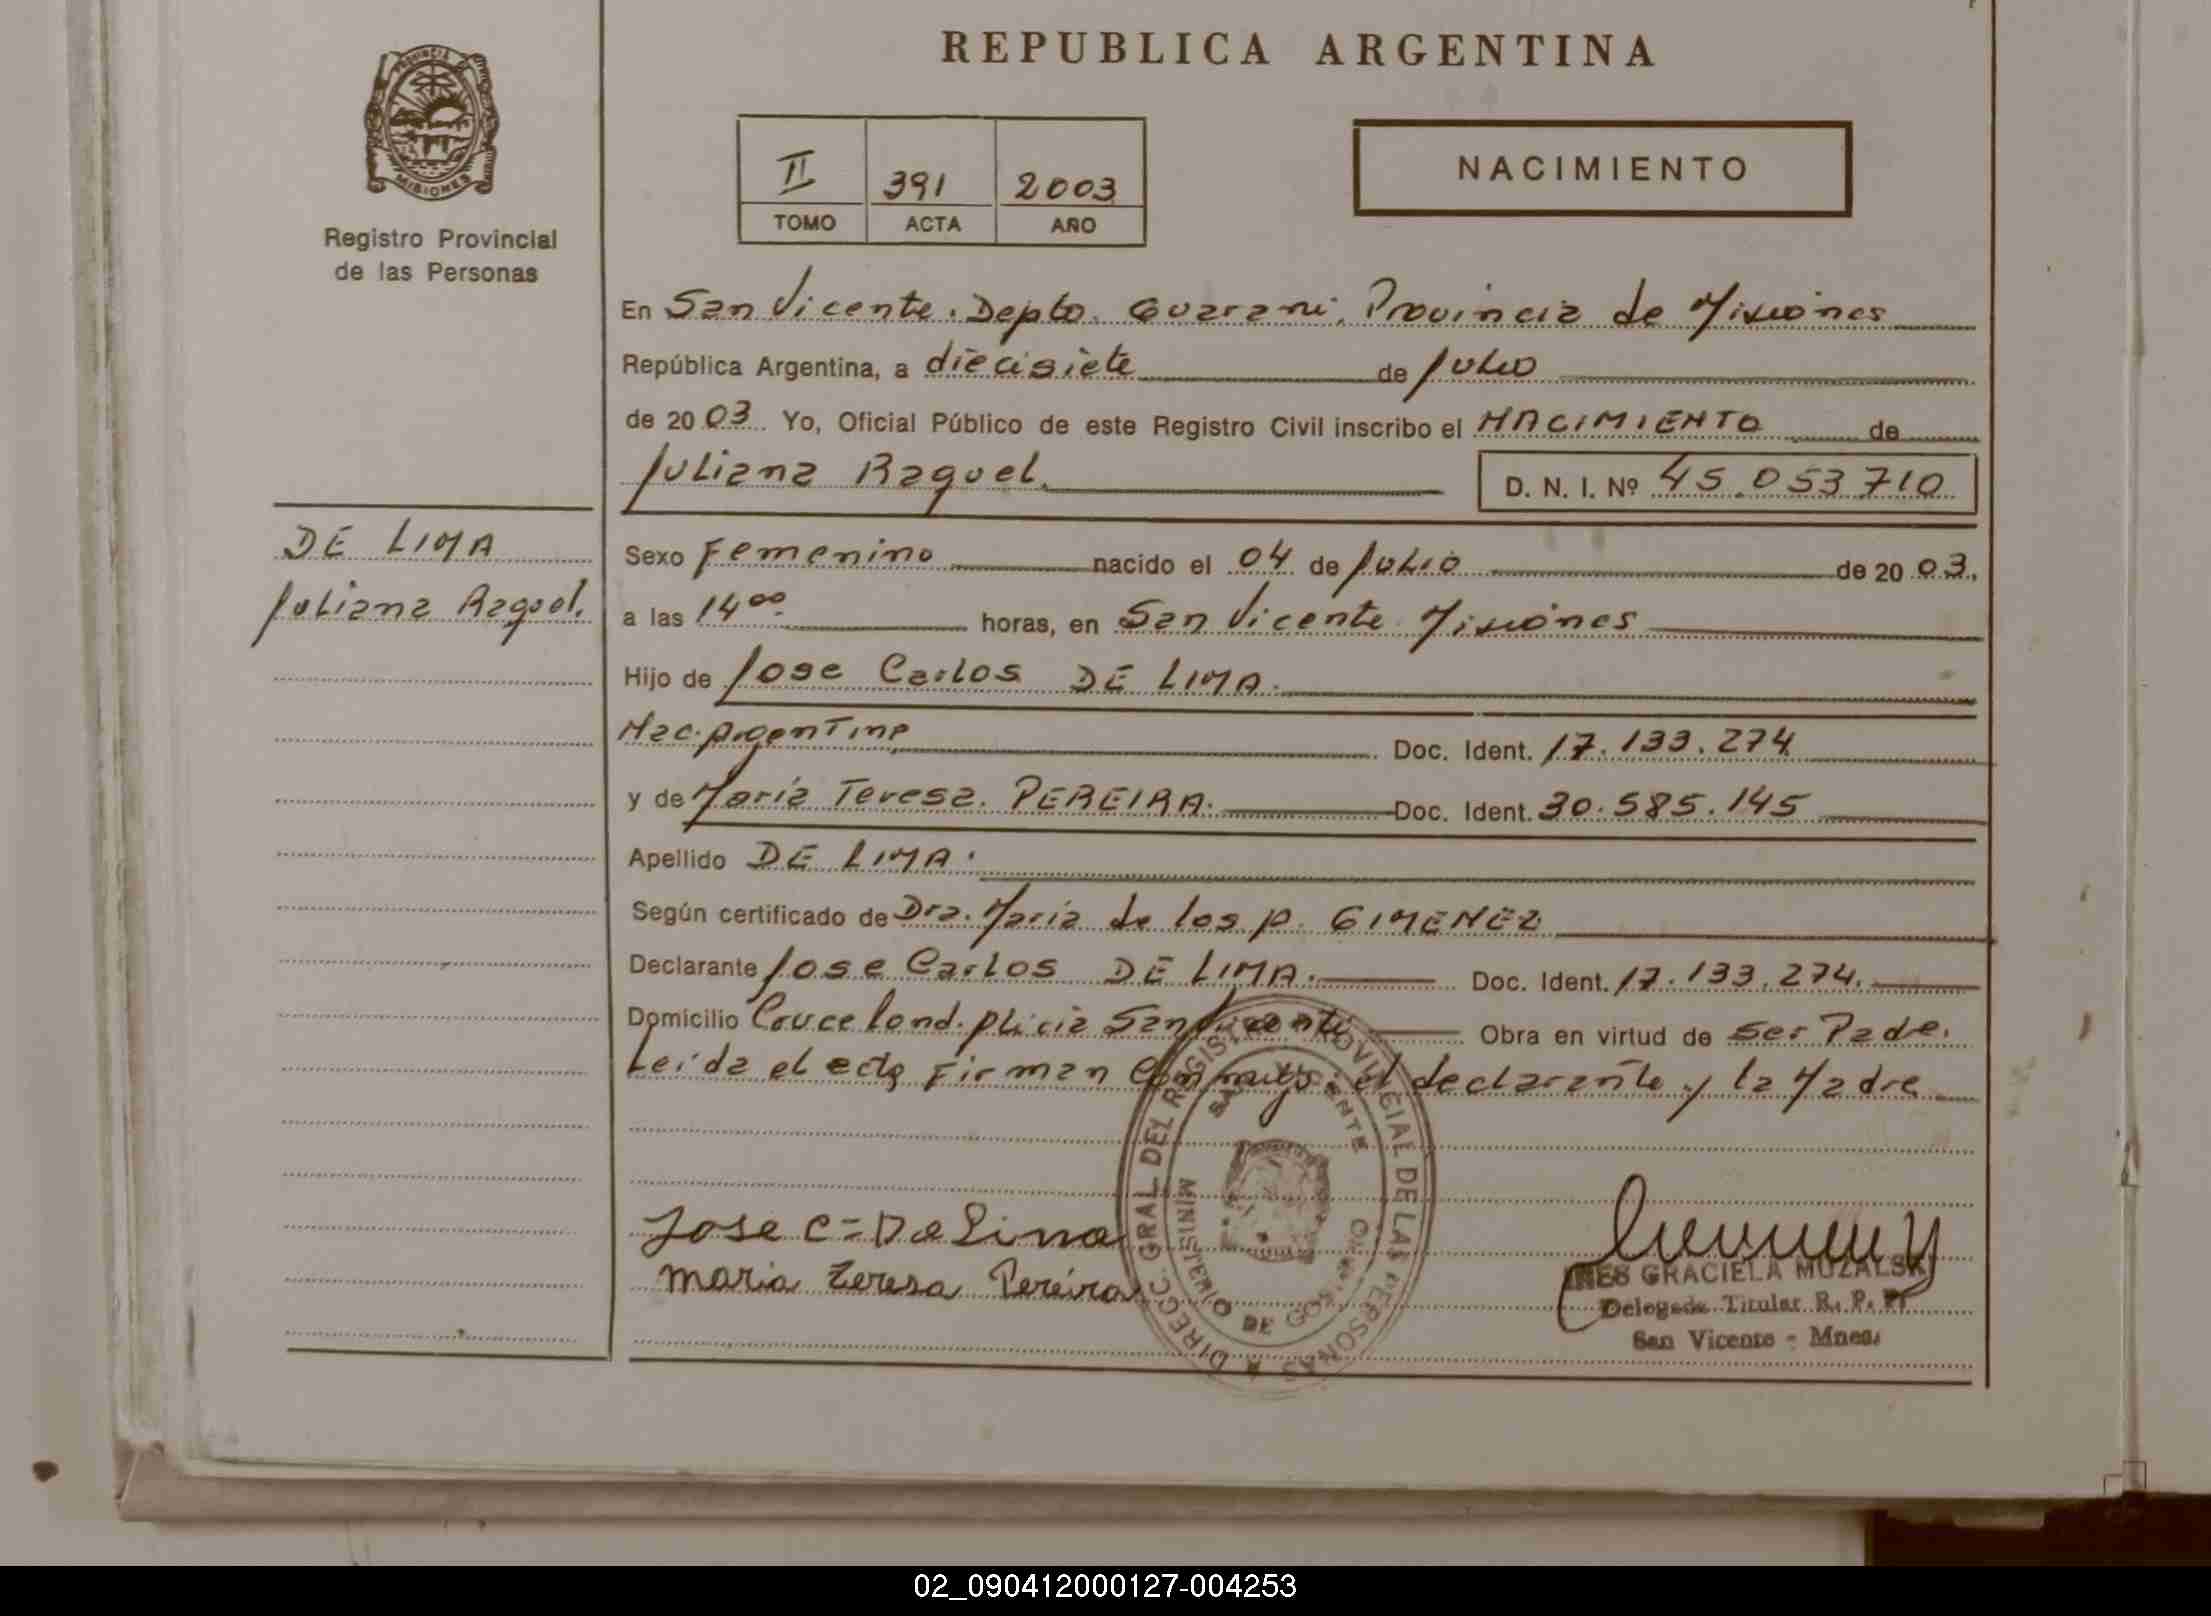 REPUBLICA ARGENTINA
PROVINCIA DE
MISIONES
Registro Provincial
de las Personas
II 391 2003
TOMO ACTA AÑO
NACIMIENTO
En San Vicente. Depto. Guarani, Provincia de Misiones
República Argentina, a diecisiete de Julio
de 2003. Yo, Oficial Público de este Registro Civil inscribo el NACIMIENTO de
Juliana Raquel.
D. N. I. Nº 45.053710
DE LIMA
Juliana Raquel.
Sexo Femenino nacido el 04 de Julio de 2003.
a las 14 00 horas, en San Vicente Misiones
Hijo de Jose Carlos DE LIMA.
Nac. Argentina Doc. Ident. 17.133.274
y de María Teresa. PEREIRA. Doc. Ident. 30.585.145
Apellido DE LIMA.
Según certificado de Dra. María de los p. GIMENEZ
Declarante Jose Carlos DE LIMA. Doc. Ident. 17.133.274.
Domicilio San Vicente Obra en virtud de Ser Padre.
Leída el acta Firman Conmigo: el declarante y la Madre
DIRECC. GRAL DEL REGISTRO PROVINCIAL DE LAS PERSONAS
SAN VICENTE
MINISTERIO DE
Jose C= De Lima
maria teresa Pereira
INES GRACIELA MUZALSKI
Delegada Titular R. P. P.
San Vicente - Mnes.
02_090412000127-004253